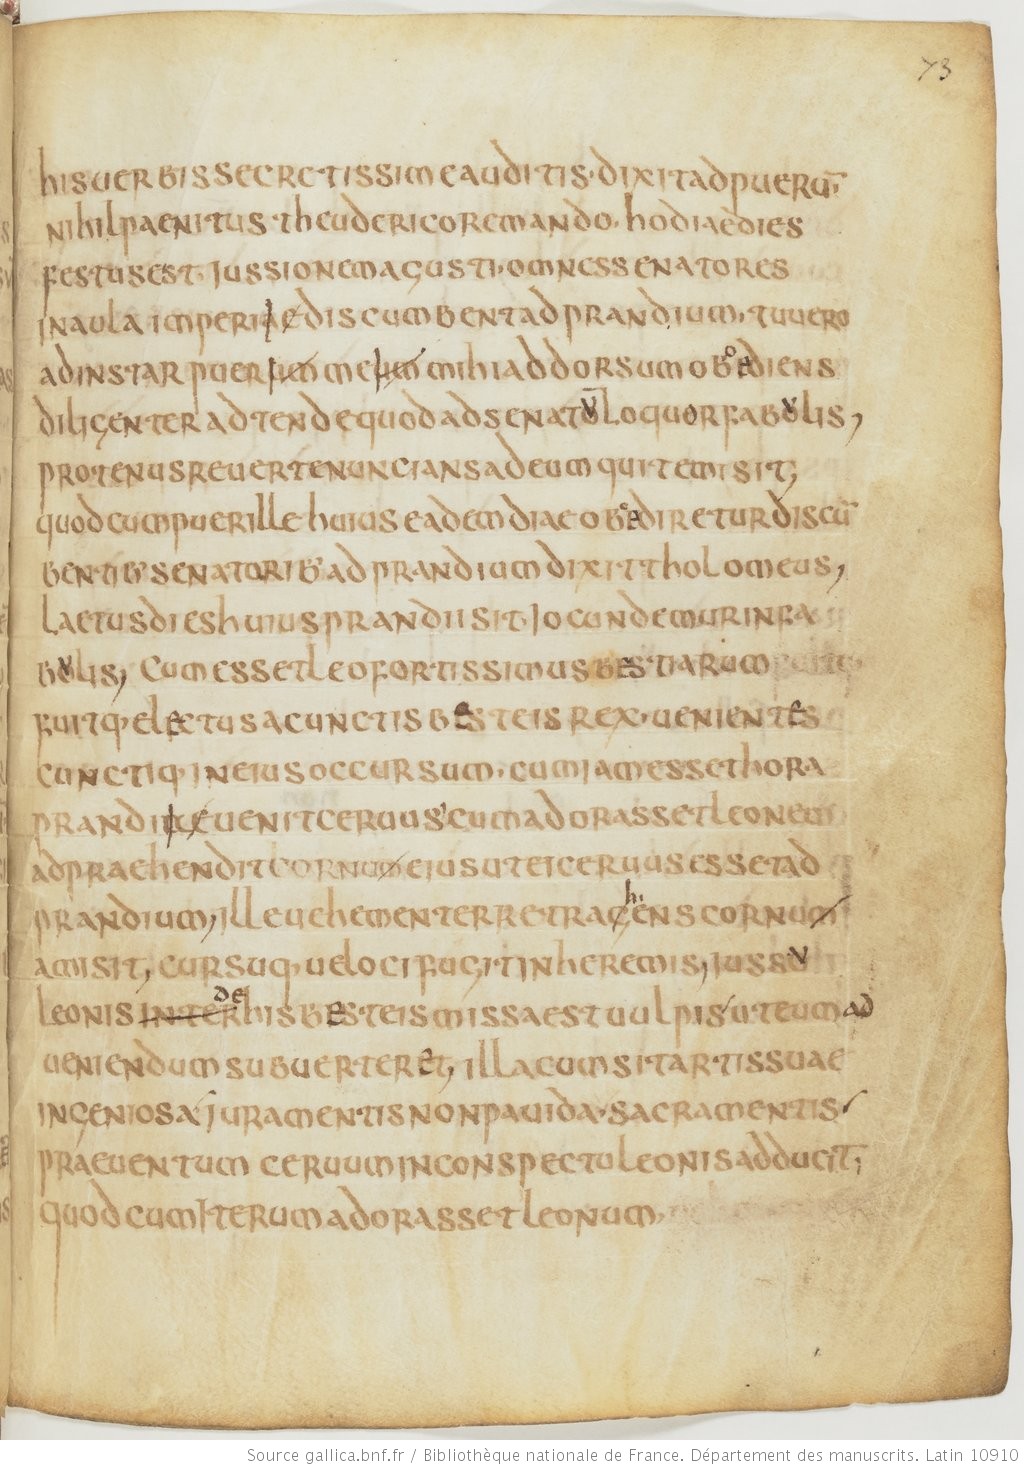 73
his uerbis secretissime auditis · dixit ad pueru͞;
nihil paenitus · theuderico remando · hodiae dies
festus est · jussionem agusti · omnes senatores
in aula imperiae discumbent ad prandium · tu uero
ad instar puerum meum mihi ad dorsum oboediens
diligenter adtende quod ad senatū loquor fabulis,
protenus reuerte nuncians ad eum qui te misit;
quod cum puer ille huius eadem diae oboediretur discu͞
bentib; senatorib; ad prandium dixit tholomeus,
laetus dies huius prandii sit · jocundemur in fa
bulis, Cum esset leo fortissimus bestiarum
fuitq· electus a cunctis besteis rex · uenientes
cunctiq· in eius occursum · cum jam esset hora
prandiiae uenit ceruus cum adorasset leonem
adpraehendit cornum eius ut ei ceruus esset ad
prandium, ille uehementer retrahens cornum
amisit, cursuq· ueloci fugit in heremis, jussu
leonis inter de his besteis missa est uulpis ut eum ad
ueniendum subuerteret, illa cum sit artissuae
ingeniosa juramentis non pauida · sacramentis
praeuentum ceruum in conspectu leonis adducit;
quod cum iterum adorasset leonum,
Source gallica.bnf.fr / Bibliothèque nationale de France. Département des manuscrits. Latin 10910